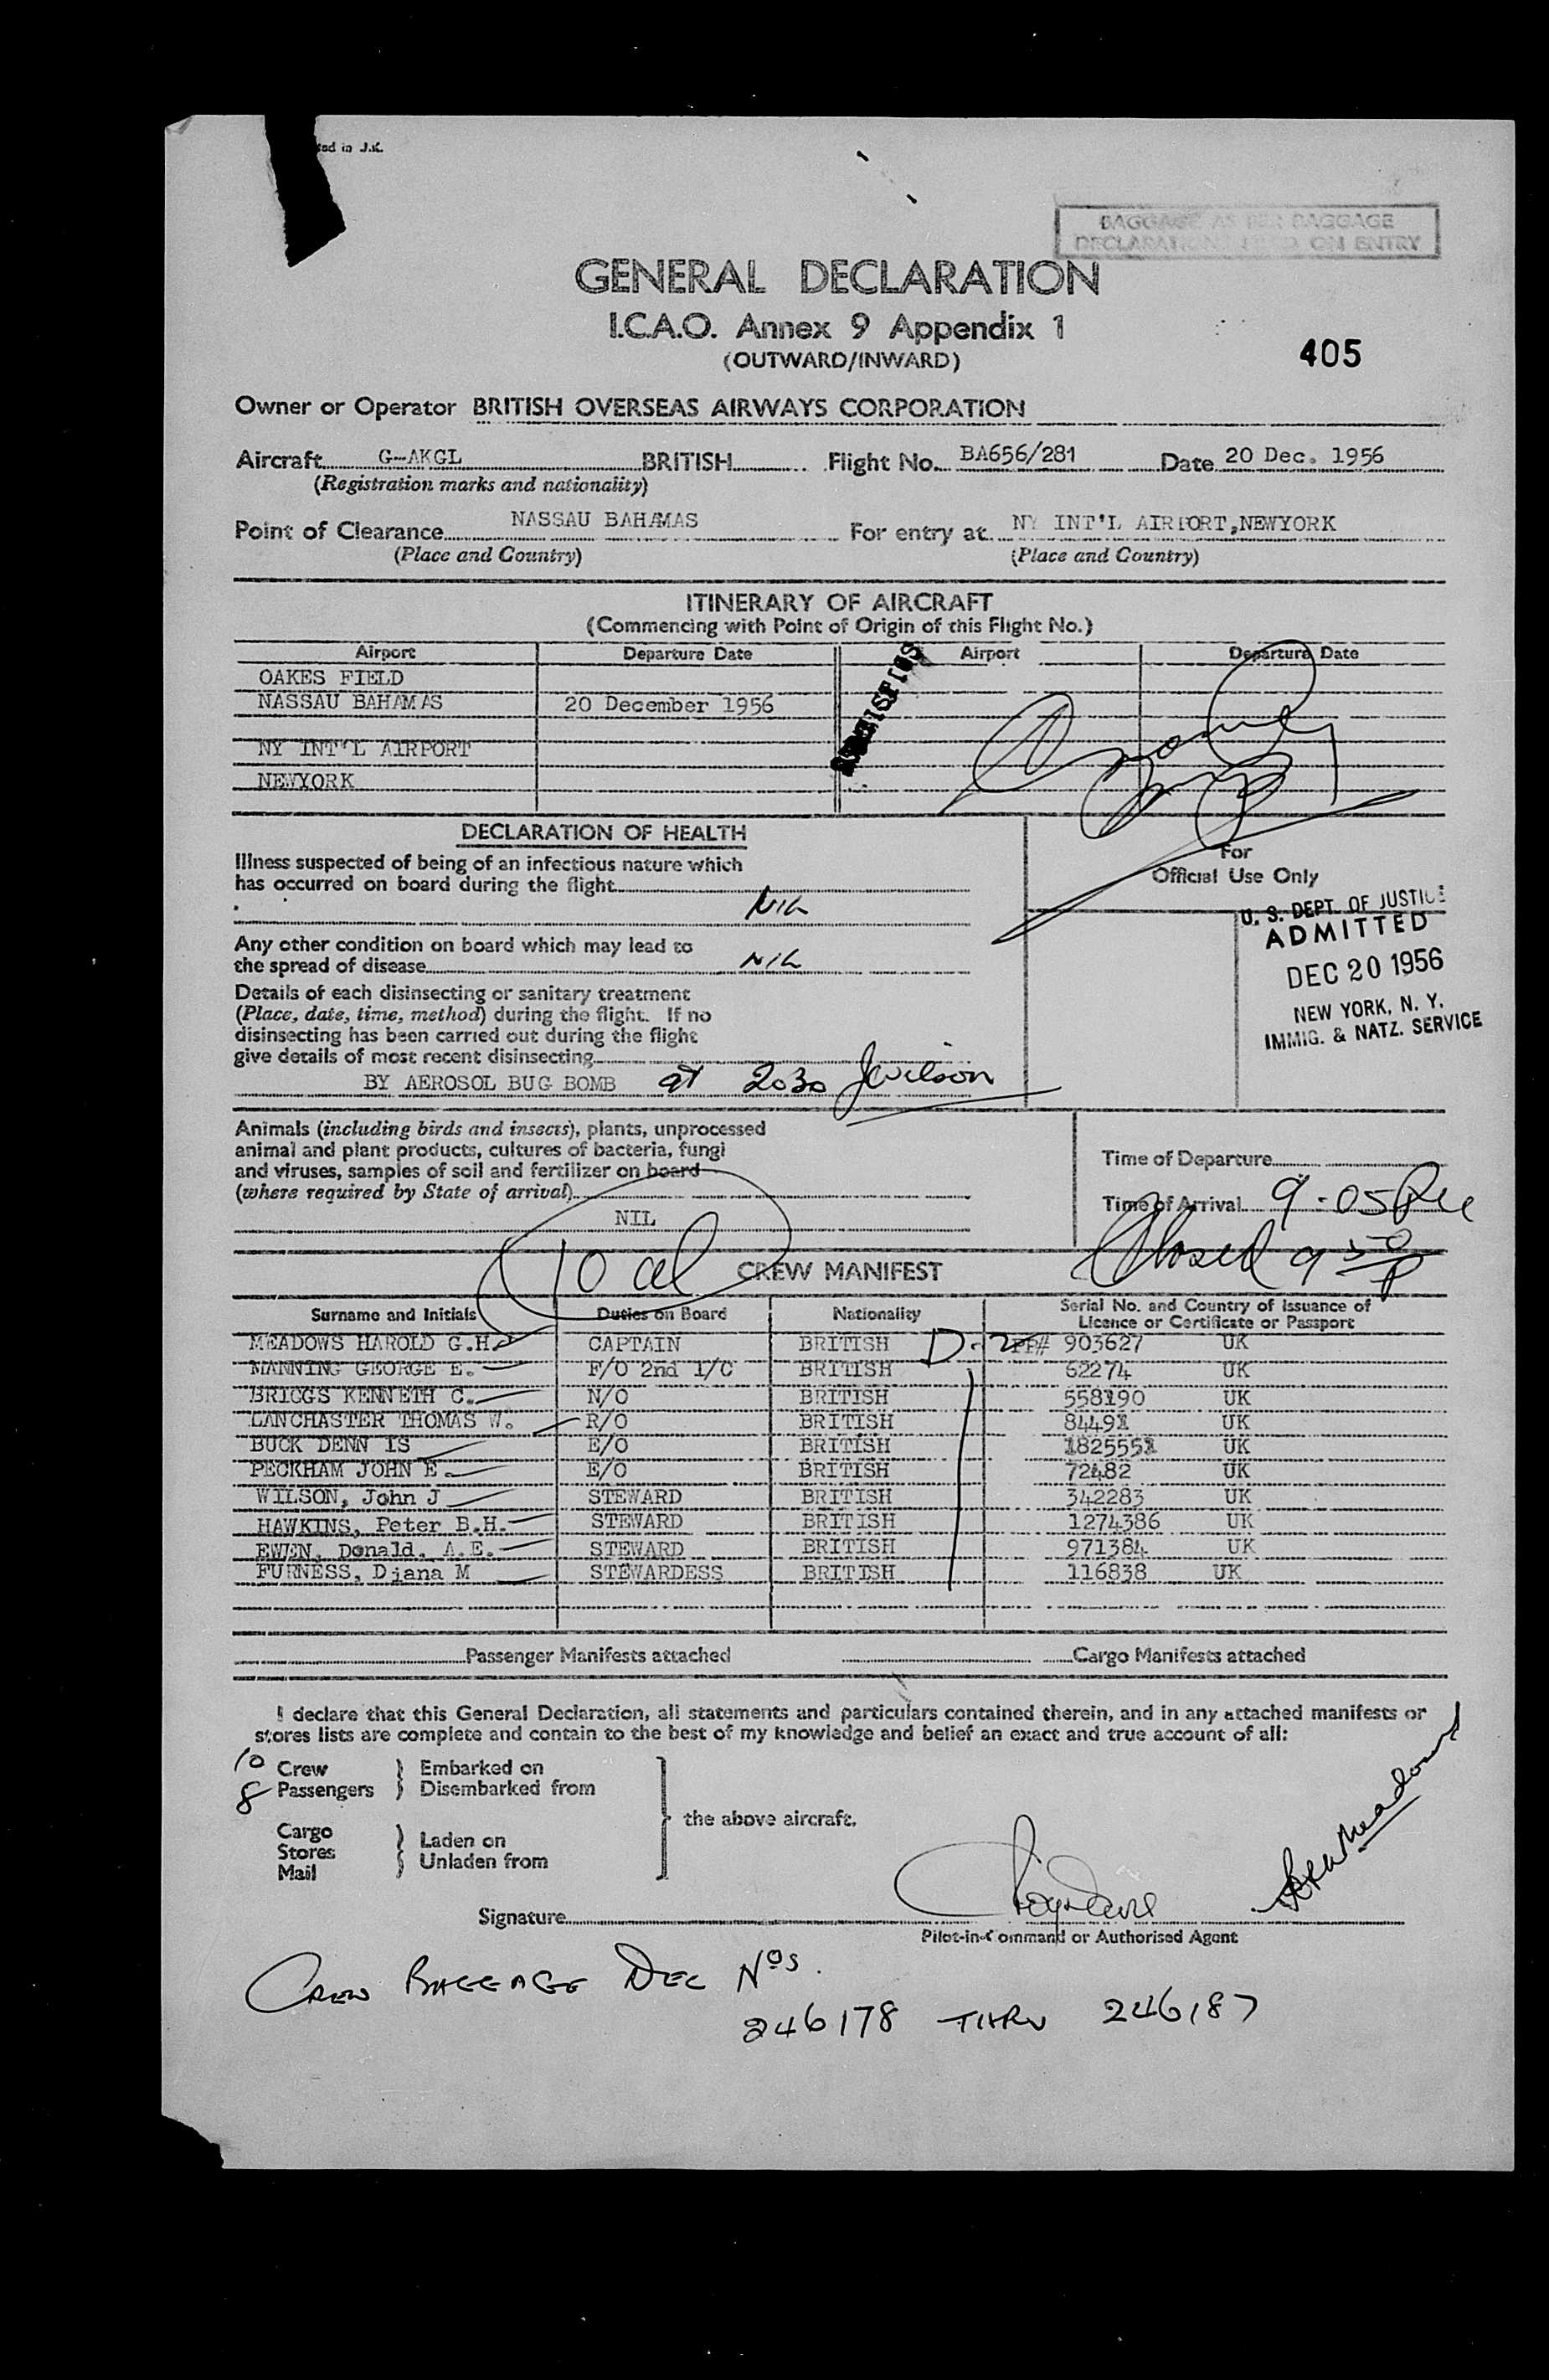 ted in U.K.
BAGGAGE AS PER BAGGAGE
DECLARATION FILED ON ENTRY
GENERAL DECLARATION
I.C.A.O. Annex 9 Appendix 1
(OUTWARD/INWARD)
405
Owner or Operator BRITISH OVERSEAS AIRWAYS CORPORATION
Aircraft G-AKGL BRITISH Flight No. BA656/281 Date 20 Dec. 1956
(Registration marks and nationality)
Point of Clearance NASSAU BAHAMAS For entry at NY INT'L AIRPORT,NEWYORK
(Place and Country) (Place and Country)
ITINERARY OF AIRCRAFT
(Commencing with Point of Origin of this Flight No.)
Airport Departure Date Airport Departure Date
OAKES FIELD
NASSAU BAHAMAS 20 December 1956
NY INT'L AIRPORT
NEWYORK
STATISTICS
DECLARATION OF HEALTH
Illness suspected of being of an infectious nature which
has occurred on board during the flight
NIL
Any other condition on board which may lead to
the spread of disease NIL
Details of each disinsecting or sanitary treatment
(Place, date, time, method) during the flight. If no
disinsecting has been carried out during the flight
give details of most recent disinsecting
BY AEROSOL BUG BOMB at 2030 JWilson
For
Official Use Only
U. S. DEPT. OF JUSTICE
ADMITTED
DEC 20 1956
NEW YORK, N. Y.
IMMIG. & NATZ. SERVICE
Animals (including birds and insects), plants, unprocessed
animal and plant products, cultures of bacteria, fungi
and viruses, samples of soil and fertilizer on board
(where required by State of arrival)
NIL
Time of Departure
Time of Arrival 9.05
Closed 9 50 P
10
CREW MANIFEST
Surname and Initials Duties on Board Nationality Serial No. and Country of Issuance of
Licence or Certificate or Passport
MEADOWS HAROLD G.H. CAPTAIN BRITISH D-2 PP# 903627 UK
MANNING GEORGE E. F/O 2nd I/C BRITISH 62274 UK
BRIGGS KENNETH C. N/O BRITISH 558190 UK
LANCHASTER THOMAS W. R/O BRITISH 84491 UK
BUCK DENN IS E/O BRITISH 1825551 UK
PECKHAM JOHN E. E/O BRITISH 72482 UK
WILSON, John J STEWARD BRITISH 342283 UK
HAWKINS, Peter B.H. STEWARD BRITISH 1274386 UK
EWEN, Donald. A.E. STEWARD BRITISH 971384 UK
FURNESS, Diana M STEWARDESS BRITISH 116838 UK
Passenger Manifests attached Cargo Manifests attached
I declare that this General Declaration, all statements and particulars contained therein, and in any attached manifests or
stores lists are complete and contain to the best of my knowledge and belief an exact and true account of all:
10 Crew Embarked on
8 Passengers Disembarked from
the above aircraft.
Cargo
Stores Laden on
Mail Unladen from
Signature
Pilot-in-Command or Authorised Agent
CREW BAGGAGE DEC Nos.
246178 THRU 246187